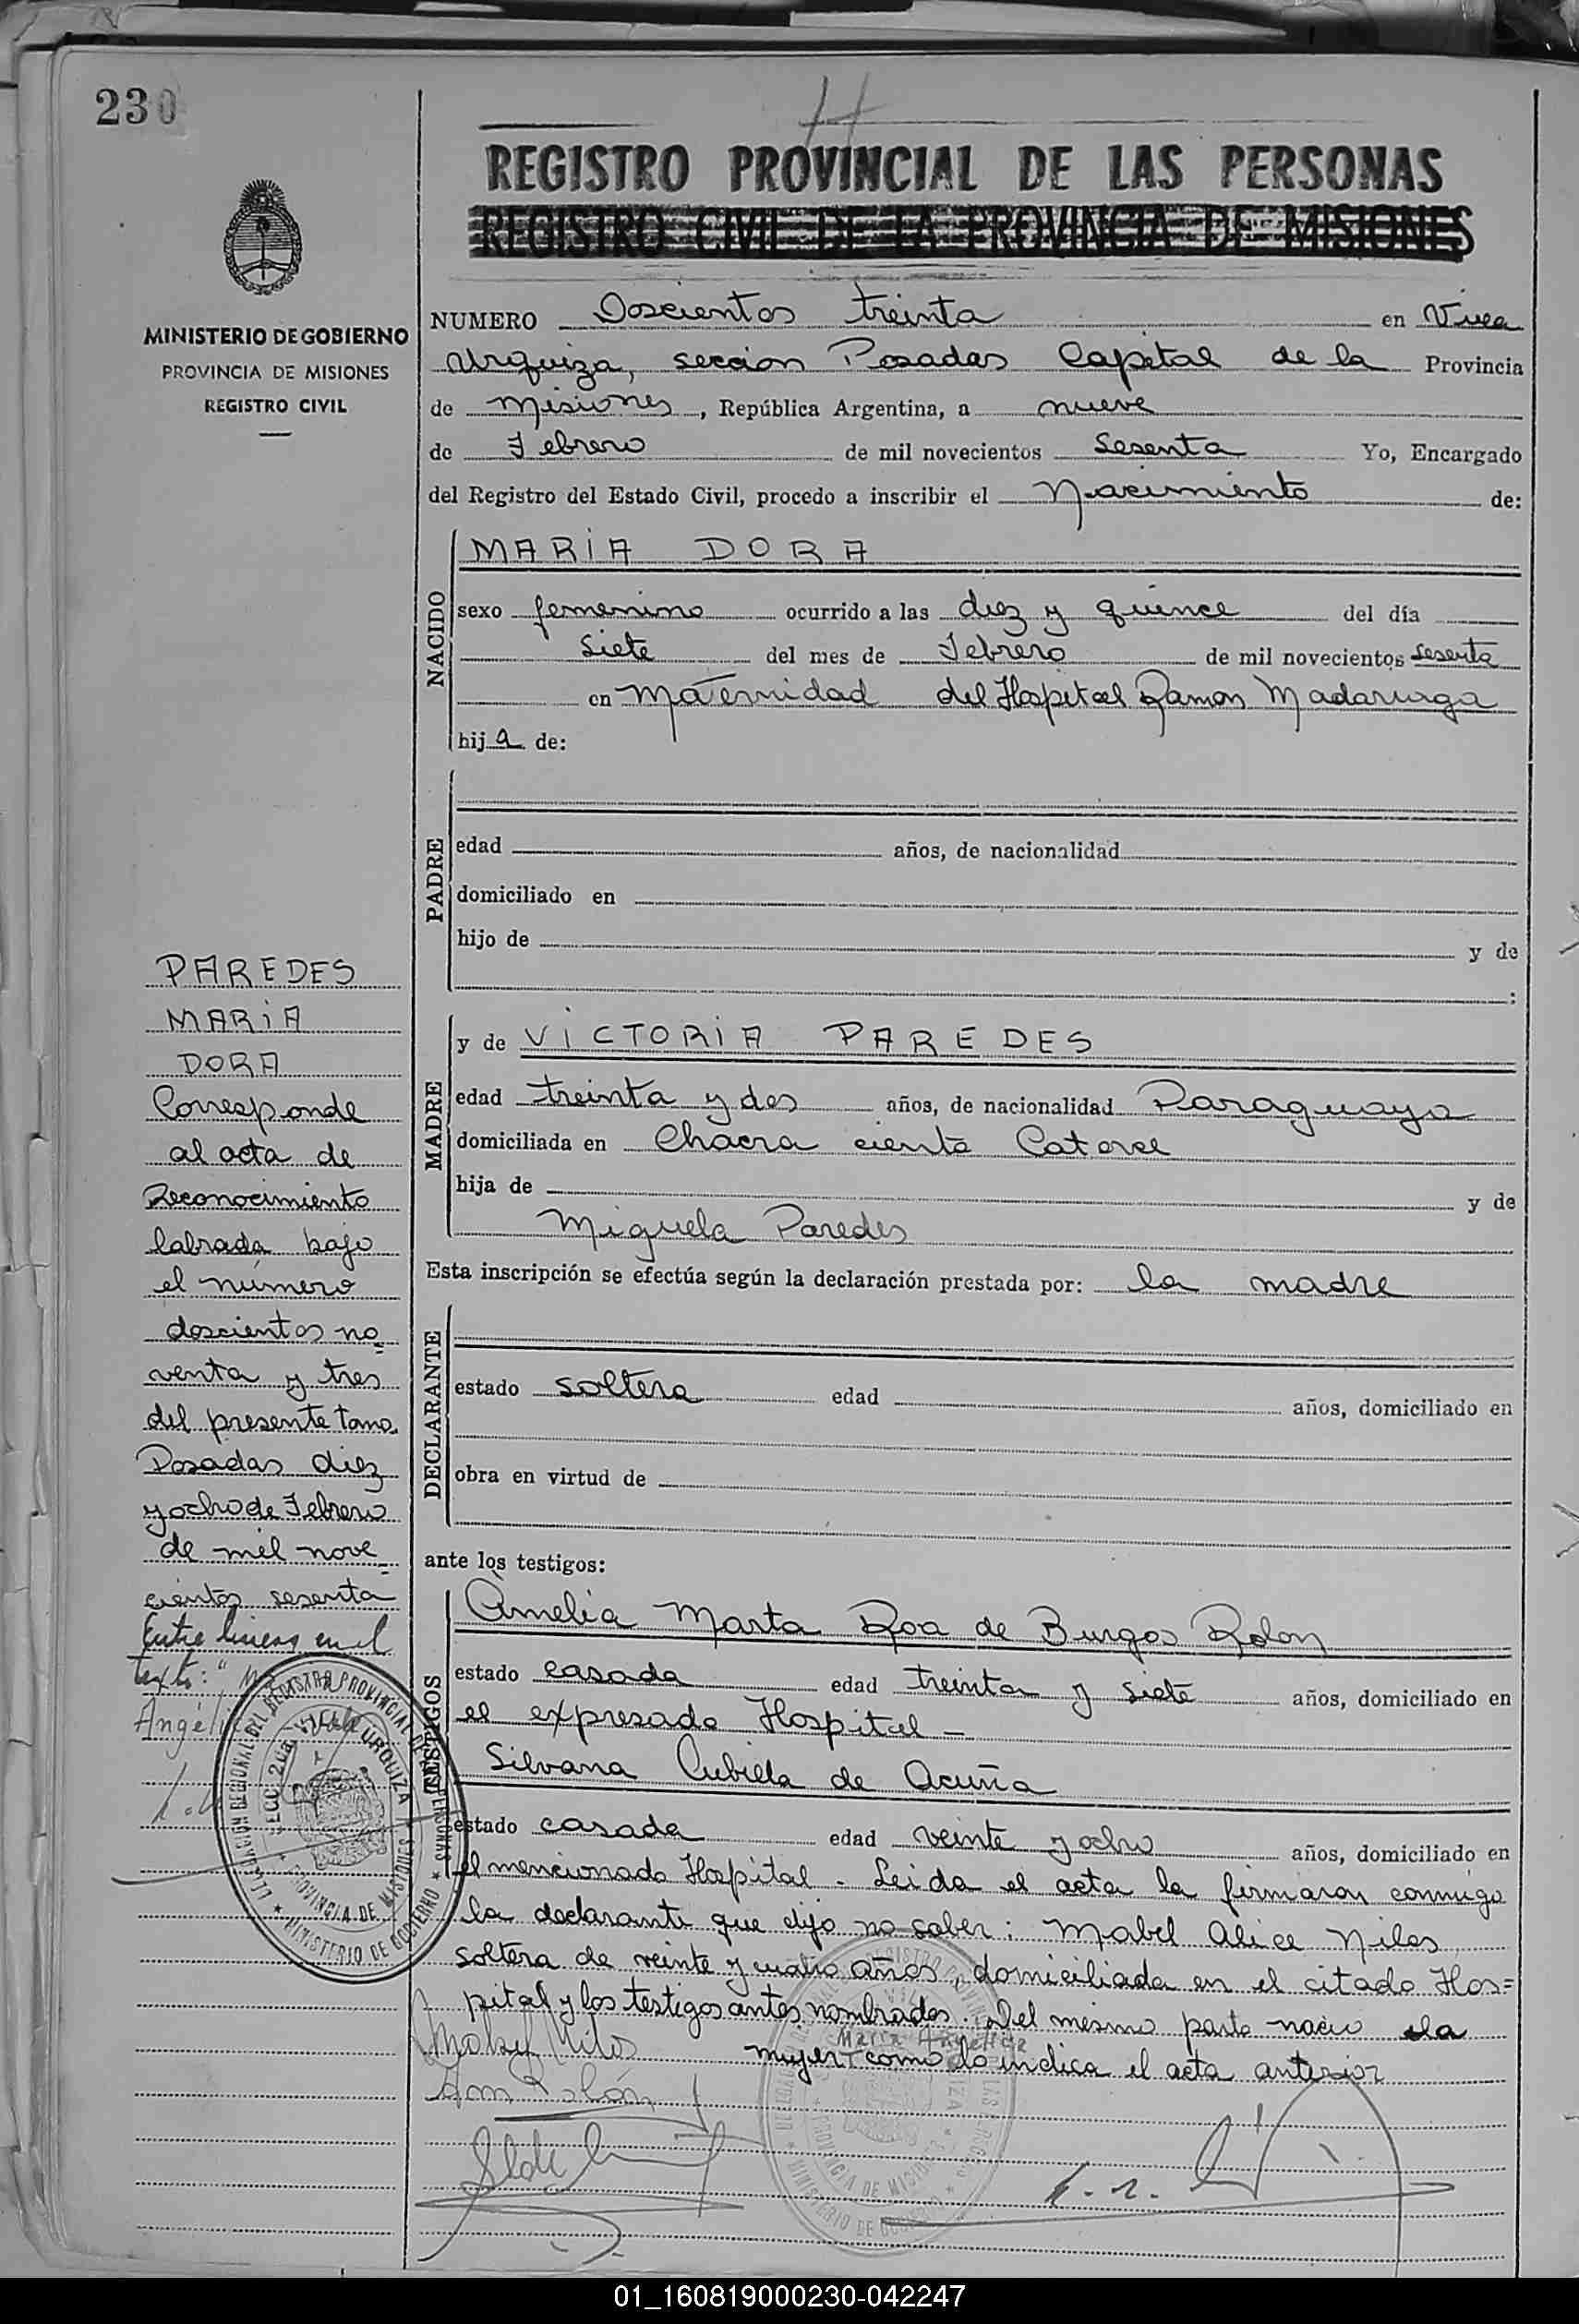 230
H
REGISTRO PROVINCIAL DE LAS PERSONAS
REGISTRO CIVIL DE LA PROVINCIA DE MISIONES
MINISTERIO DE GOBIERNO
PROVINCIA DE MISIONES
REGISTRO CIVIL
NUMERO Doscientos treinta en Villa
Urquiza, seccion Posadas Capital de la Provincia
de Misiones, República Argentina, a nueve
de Febrero de mil novecientos Sesenta Yo, Encargado
del Registro del Estado Civil, procedo a inscribir el Nacimiento de:
NACIDO
MARIA DORA
sexo femenino ocurrido a las diez y quince del día
siete del mes de Febrero de mil novecientos sesenta
en Maternidad del Hospital Ramon Madariaga
hija de:
PADRE
edad años, de nacionalidad
domiciliado en
hijo de y de
:
MADRE
y de VICTORIA PAREDES
edad treinta y dos años, de nacionalidad Paraguaya
domiciliada en Chacra ciento Catorce
hija de y de
Miguela Paredes
Esta inscripción se efectúa según la declaración prestada por: la madre
DECLARANTE
estado soltera edad años, domiciliado en
obra en virtud de
ante los testigos:
TESTIGOS
Amelia Marta Roa de Burgos Rolon
estado casada edad treinta y siete años, domiciliado en
el expresado Hospital
Silvana Cubilla de Acuña
estado casada edad veinte y ocho años, domiciliado en
el mencionado Hospital. Leida el acta la firmaron conmigo
la declarante que dijo no saber: Mabel Alice Niles
soltera de veinte y cuatro años, domiciliada en el citado Hos=
pital y los testigos antes nombrados. Del mismo parto nacio la
Maria Angelica
mujer como lo indica el acta anterior
PAREDES
MARIA
DORA
Corresponde
al acta de
Reconocimiento
labrada bajo
el número
doscientos no
venta y tres
del presente tomo.
Posadas diez
y ocho de Febrero
de mil nove
cientos sesenta
Entre lineas en el
texto: "
MINISTERIO DE GOBIERNO
PROVINCIA DE MISIONES
01_160819000230-042247